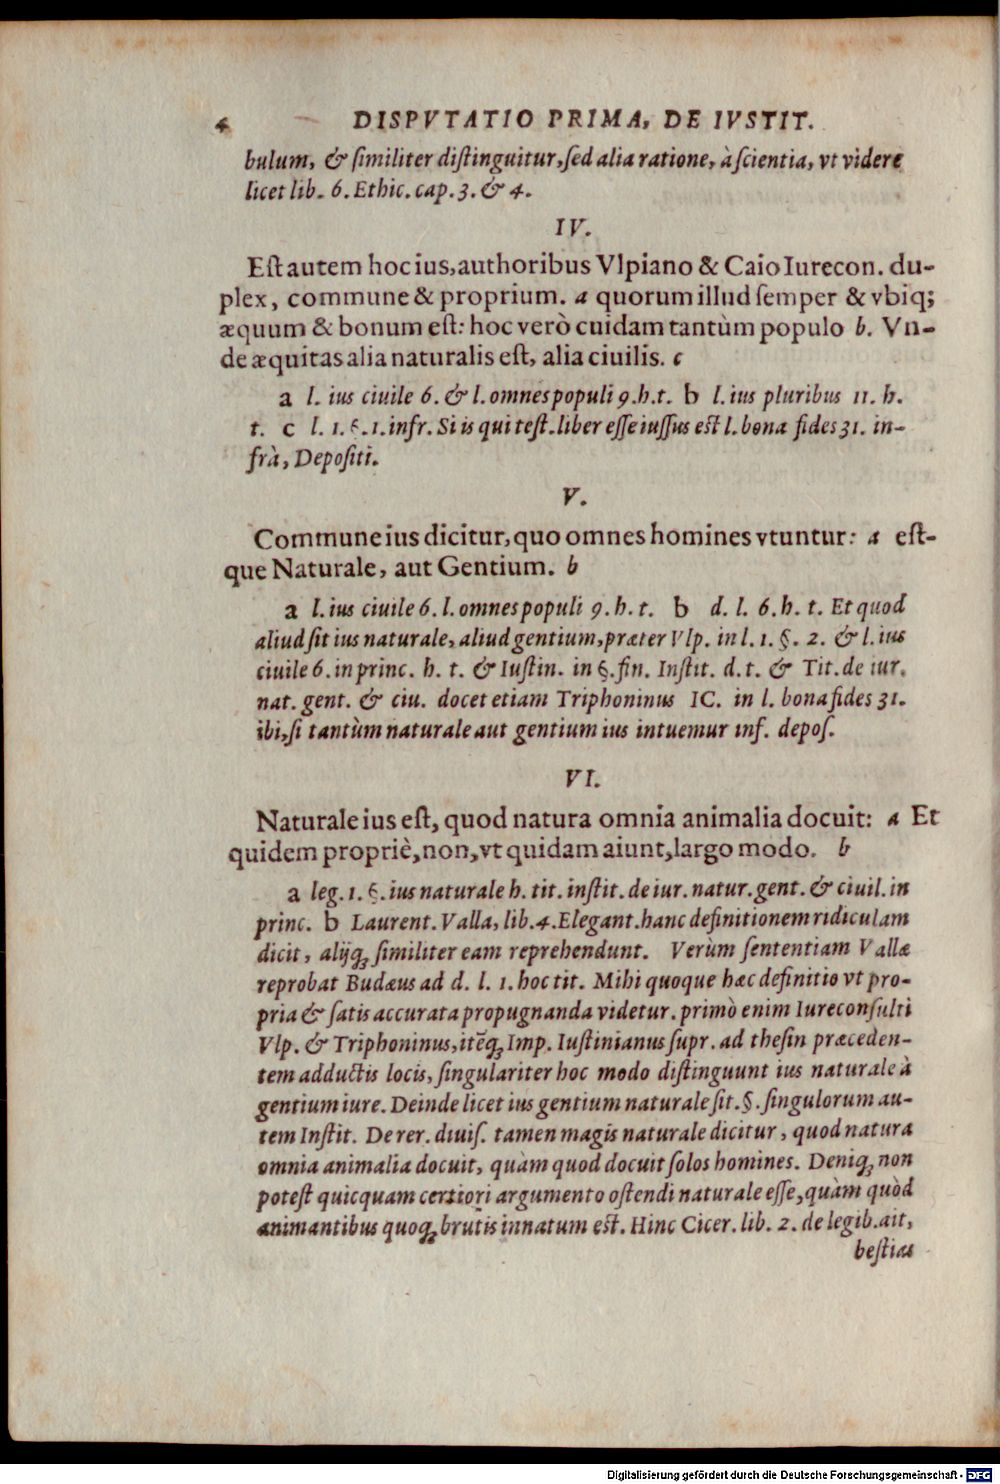 4 DISPVTATIO PRIMA, DE IVSTIT.
bulum, & ſimiliter diſtinguitur, ſed alia ratione, à ſcientia, vt videre
licet lib. 6. Ethic. cap. 3. & 4.
IV.
Eſt autem hoc ius, authoribus Vlpiano & Caio Iurecon. du-
plex, commune & proprium. a quorum illud ſemper & vbiq;
æquum & bonum eſt: hoc verò cuidam tantùm populo b. Vn-
de æquitas alia naturalis eſt, alia ciuilis. c
a l. ius ciuile 6. & l. omnes populi 9. h. t. b l. ius pluribus 11. h.
t. c l. 1. §. 1. infr. Si is qui teſt. liber eſſe iuſſus eſt l. bona fides 31. in-
frà, Depoſiti.
V.
Commune ius dicitur, quo omnes homines vtuntur: a eſt-
que Naturale, aut Gentium. b
a l. ius ciuile 6. l. omnes populi 9. h. t. b d. l. 6. h. t. Et quod
aliud ſit ius naturale, aliud gentium, præter Vlp. in l. 1. §. 2. & l. ius
ciuile 6. in princ. h. t. & Iuſtin. in §. fin. Inſtit. d. t. & Tit. de iur.
nat. gent. & ciu. docet etiam Triphoninus IC. in l. bona fides 31.
ibi, ſi tantùm naturale aut gentium ius intuemur inf. depoſ.
VI.
Naturale ius eſt, quod natura omnia animalia docuit: a Et
quidem propriè, non, vt quidam aiunt, largo modo. b
a leg. 1. §. ius naturale h. tit. inſtit. de iur. natur. gent. & ciuil. in
princ. b Laurent. Valla, lib. 4. Elegant. hanc definitionem ridiculam
dicit, alijq́; ſimiliter eam reprehendunt. Verùm ſententiam Vallæ
reprobat Budæus ad d. l. 1. hoc tit. Mihi quoque hæc definitio vt pro-
pria & ſatis accurata propugnanda videtur. primò enim Iureconſulti
Vlp. & Triphoninus, itẽq; Imp. Iuſtinianus ſupr. ad theſin præceden-
tem adductis locis, ſingulariter hoc modo diſtinguunt ius naturale à
gentium iure. Deinde licet ius gentium naturale ſit. §. ſingulorum au-
tem Inſtit. De rer. diuiſ. tamen magis naturale dicitur, quod natura
omnia animalia docuit, quàm quod docuit ſolos homines. Deniq; non
poteſt quicquam certiori argumento oſtendi naturale eſſe, quàm quòd
animantibus quoq; brutis innatum eſt. Hinc Cicer. lib. 2. de legib. ait,
beſtias
Digitalisierung gefördert durch die Deutsche Forschungsgemeinschaft - DFG